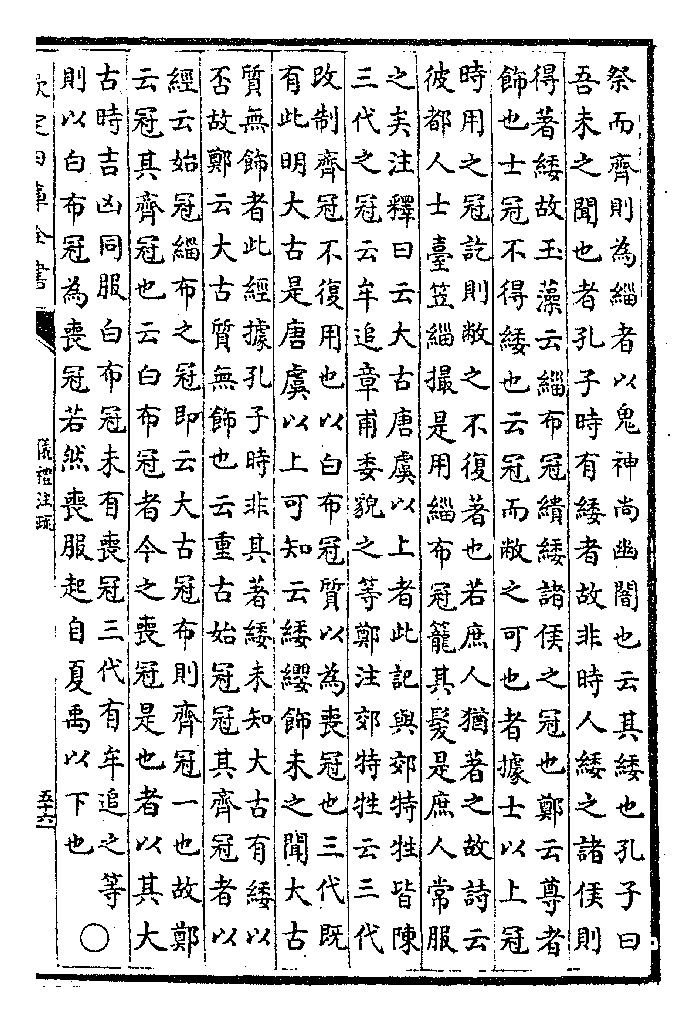 祭而齊則為緇者以鬼神尚幽闇也云其緌也孔子曰
吾未之聞也者孔子時有緌者故非時人緌之諸侯則
得著緌故玉藻云緇布冠繢緌諸侯之冠也鄭云尊者
飾也士冠不得緌也云冠而敝之可也者據士以上冠
時用之冠訖則敝之不復著也若庶人猶著之故詩云
彼都人士臺笠緇撮是用緇布冠籠其髮是庶人常服
之矣注釋曰云大古唐虞以上者此記與郊特牲皆陳
三代之冠云牟追章甫委貌之等鄭注郊特牲云三代
改制齊冠不復用也以白布冠質以為喪冠也三代既
有此明大古是唐虞以上可知云緌纓飾未之聞大古
質無飾者此經據孔子時非其著緌未知大古有緌以
否故鄭云大古質無飾也云重古始冠冠其齊冠者以
經云始冠緇布之冠即云大古冠布則齊冠一也故鄭
云冠其齊冠也云白布冠者今之喪冠是也者以其大
古時吉凶同服白布冠未有喪冠三代有牟追之等
則以白布冠為喪冠若然喪服起自夏禹以下也○
欽定四庫全書
儀禮注疏
五十六